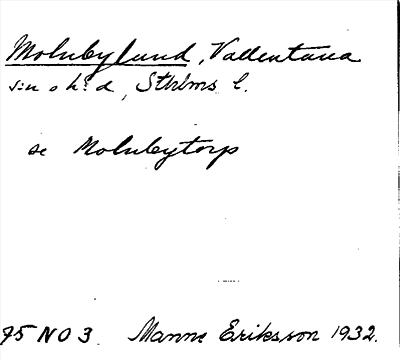 Molnbylund, Vallentuna
sn o hd, Sthlms l.
se Molnbytorp
75 NO 3. Manne Eriksson 1932.